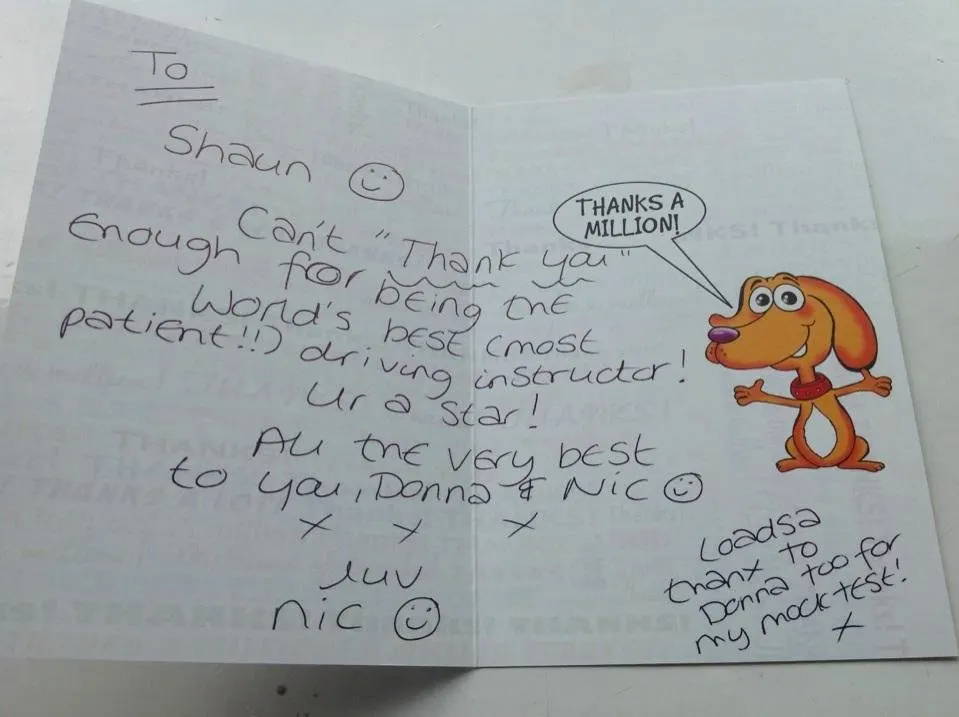 To
Shaun ☺
Can't "Thank you"
Enough for being the
World's best (most
patient!!) driving instructor!
Ur a star!
All the very best
to you, Donna & Nic ☺
x x x
luv
nic ☺
THANKS A
MILLION!
Loadsa
thanx to
Donna too for
my mock test!
x